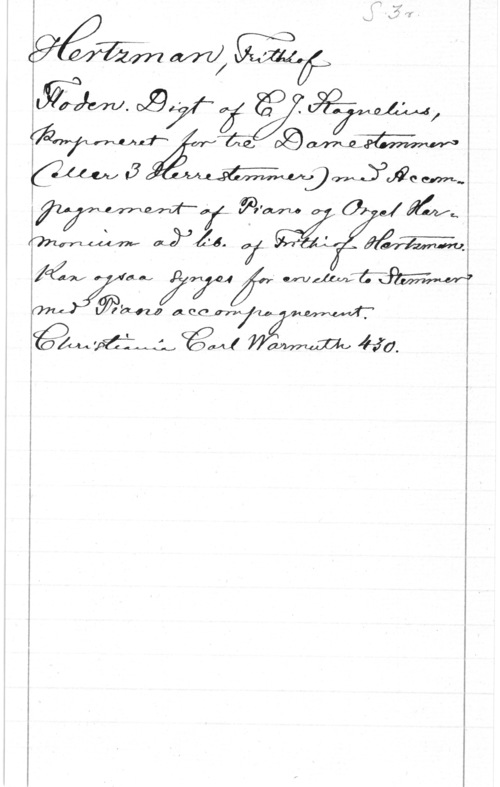 S 3 r.
Hertzman, Frithiof
Floden. Digt af E J. Stagnelius,
komponeret for tre Damestemmer
(eller 3 Herrestemmer) med Accom-
pagnement af Piano og Orgel Har-
monium ad lib. af Frithiof Hertzman.
Kan ogsaa synges for en eller to Stemmer
med Piano accompagnement.
Christiania Carl Warmuth 430.